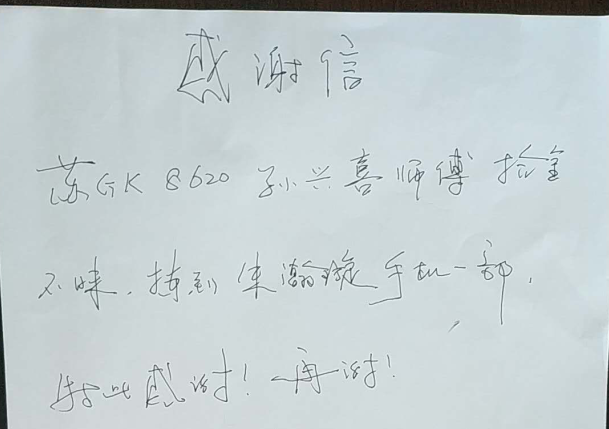 感谢信
苏GK8620孙兴喜师傅拾金
不昧,捡到朱瀚璇手机一部,
特此感谢!再谢!